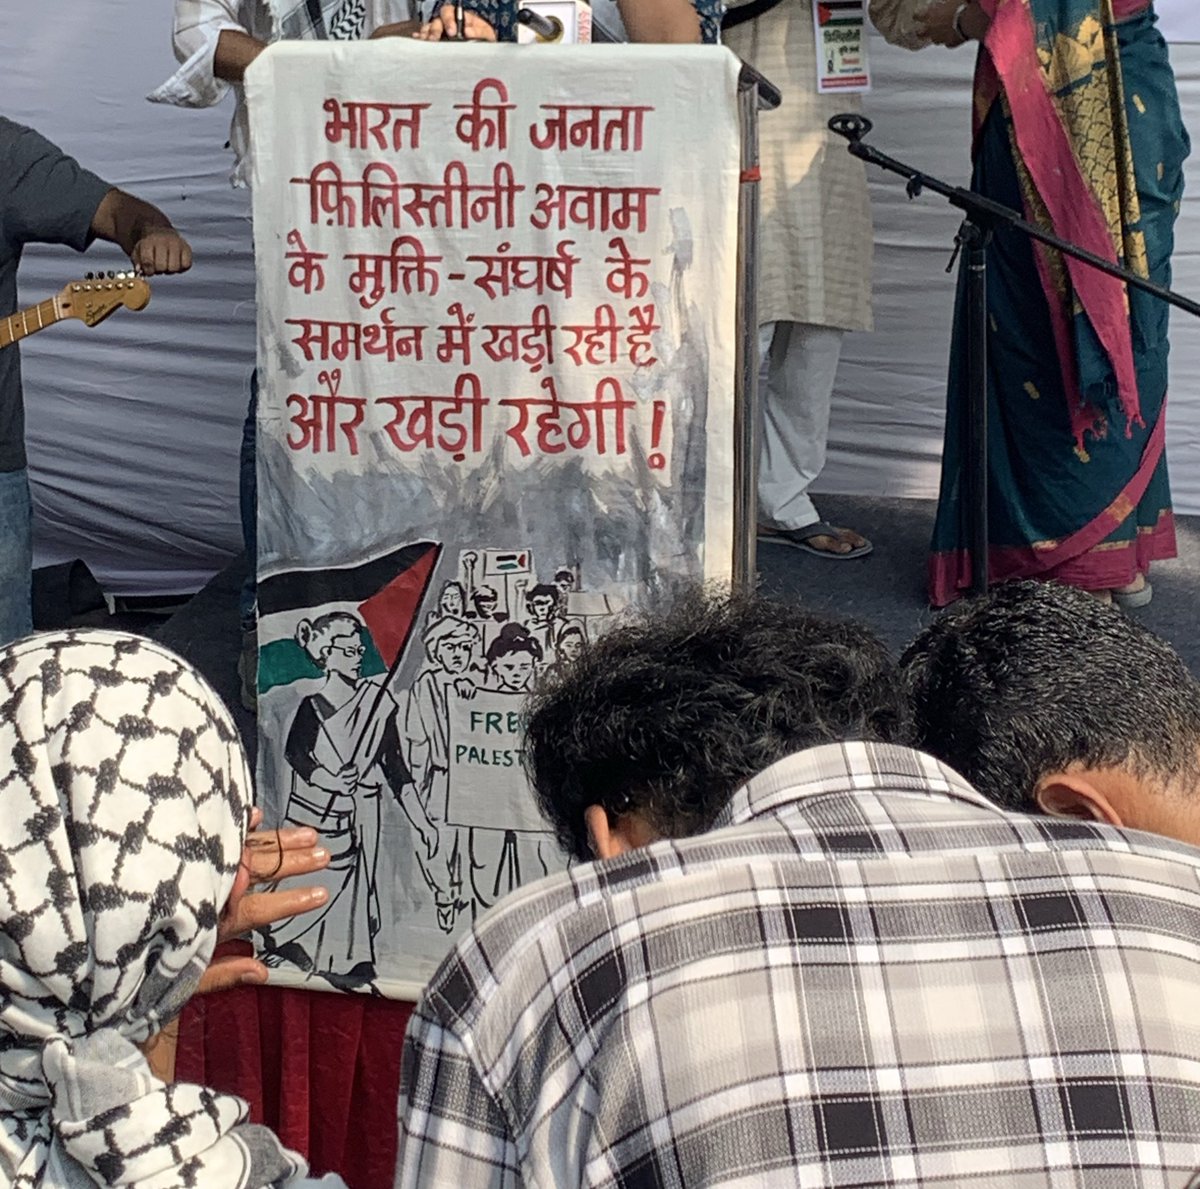 भारत की जनता
फ़िलिस्तीनी अवाम
के मुक्ति-संघर्ष के
समर्थन में खड़ी रही है
और खड़ी रहेगी!
FRE
PALEST